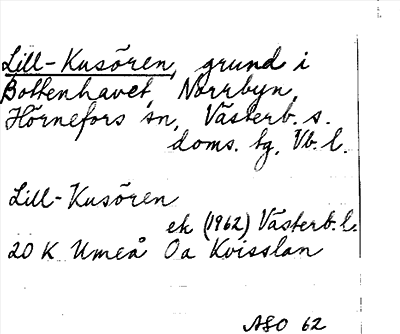 Lill-Kusören, grund i
Bottenhavet, Norrbyn,
Hörnefors sn, Västerb. s.
doms. tg, Vb. l.
Lill-Kusören
ek (1962) Västerb. l.
20 K Umeå Oa Kvisslan
ASO 62